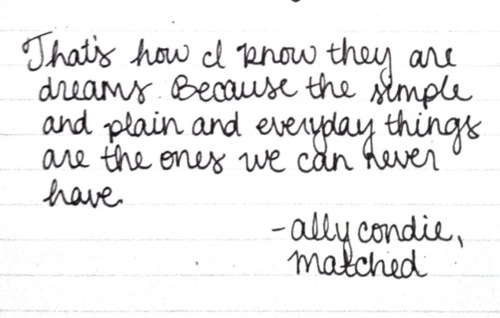 That's how I know they are
dreams. Because the simple
and plain and everyday things
are the ones we can never
have.
-ally condie,
matched